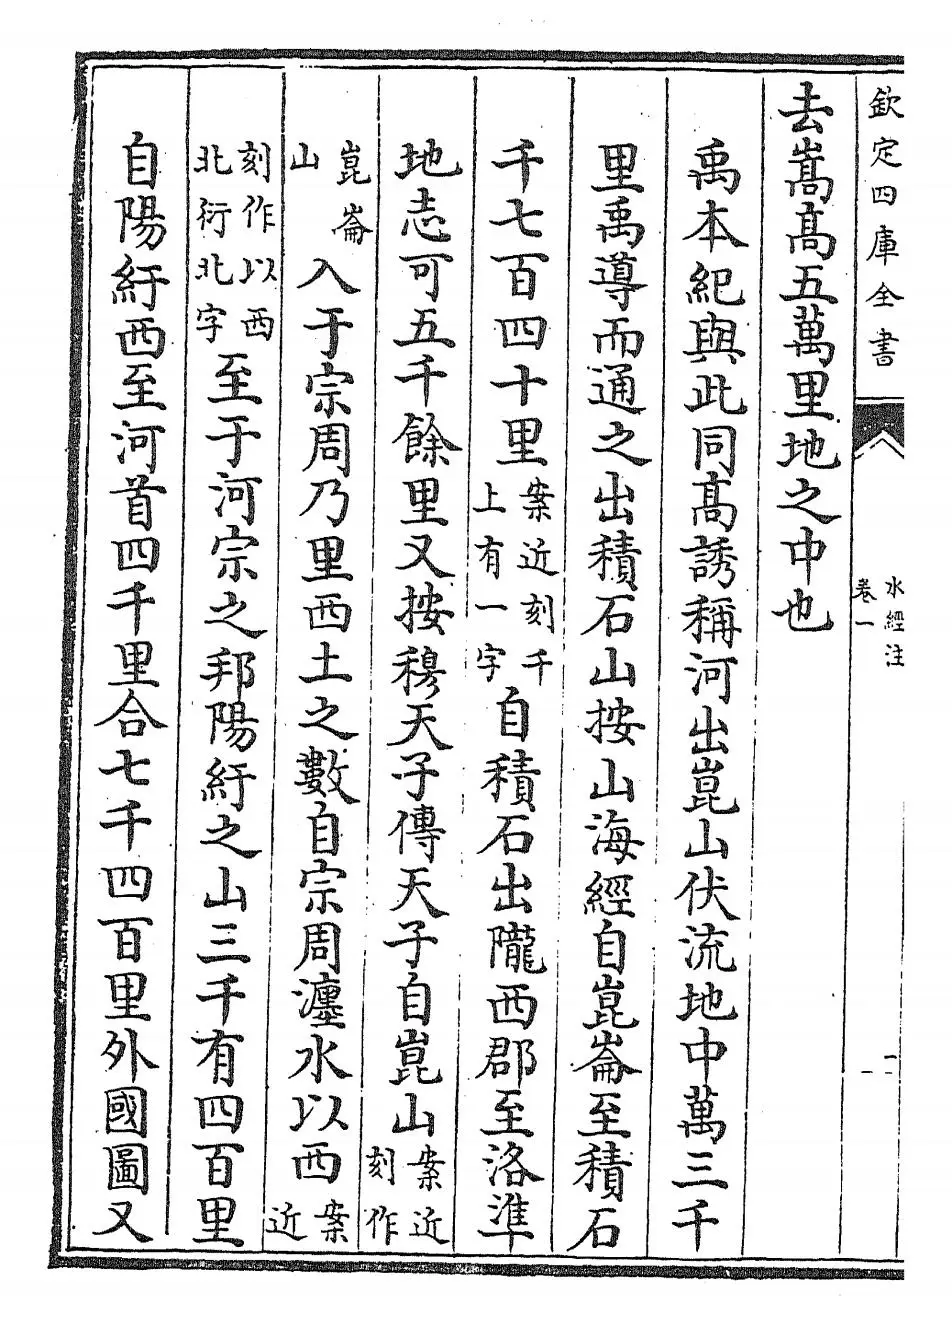 欽定四庫全書
水經注
卷一
二
去嵩髙五萬里地之中也
禹本紀與此同髙誘稱河出崑山伏流地中萬三千
里禹導而通之出積石山按山海經自崑崙至積石
千七百四十里案近刻千上有一字自積石出隴西郡至洛準
地志可五千餘里又按穆天子傳天子自崑山案近刻作
崑崙山入于宗周乃里西土之數自宗周瀍水以西案近
刻作以西北衍北字至于河宗之邦陽紆之山三千有四百里
自陽紆西至河首四千里合七千四百里外國圖又